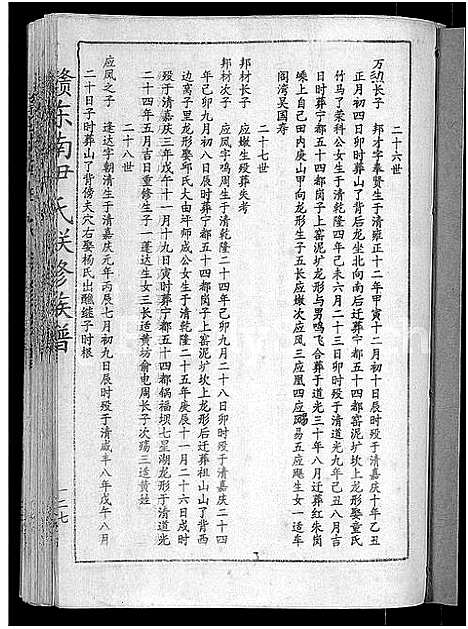 二十六世
万边长子 邦才字奉贤生于清雍正十二年甲寅十二月初十日辰时殁于清嘉庆十年乙丑
正月初四日卯时葬山了背后龙坐北向南后迁葬宁都五十四都窑泥圹坎上龙形娶童氏
竹马了荣科公女生于清乾隆四年己未六月二十三日卯时殁于清道光九年己丑八月吉
日时葬宁都五十四都岗子上窑泥圹龙形与男鸣飞合葬于道光三十年八月迁葬红朱岗
嵊上自己田内庚山甲向龙形生子五长应嫩次应凤三应凰四应飏易五应飏生女一适车
阁湾吴国寿
二十七世
邦材长子 应嫩生殁葬失考
邦材次子 应凤字鸣周生于清乾隆二十四年己卯九月二十八日卯时殁于清嘉庆二十四
年己卯九月初八日辰时葬宁都五十四都岗子上窑泥圹坎上龙形后迁葬祖山山了背西
边窝子里龙形娶邱氏大由坪师成公女生于清乾隆二十五年庚辰十一月二十六日戌时
殁于清嘉庆三年戊午十一月十九日寅时葬宁都五十四都锅福坝七星湖龙形于清道光
二十四年五月吉日重修生子一蓬达生女三长适黄坊俞电周长子次殇三适黄姓
二十八世
应凤之子 逢达字朝清生于清嘉庆元年丙辰七月初九日辰时殁于清咸丰八年戊午八月
二十日子时葬山了背傍夫穴右娶杨氏出醮继子时根
赣东南尹氏联修族谱
一二七